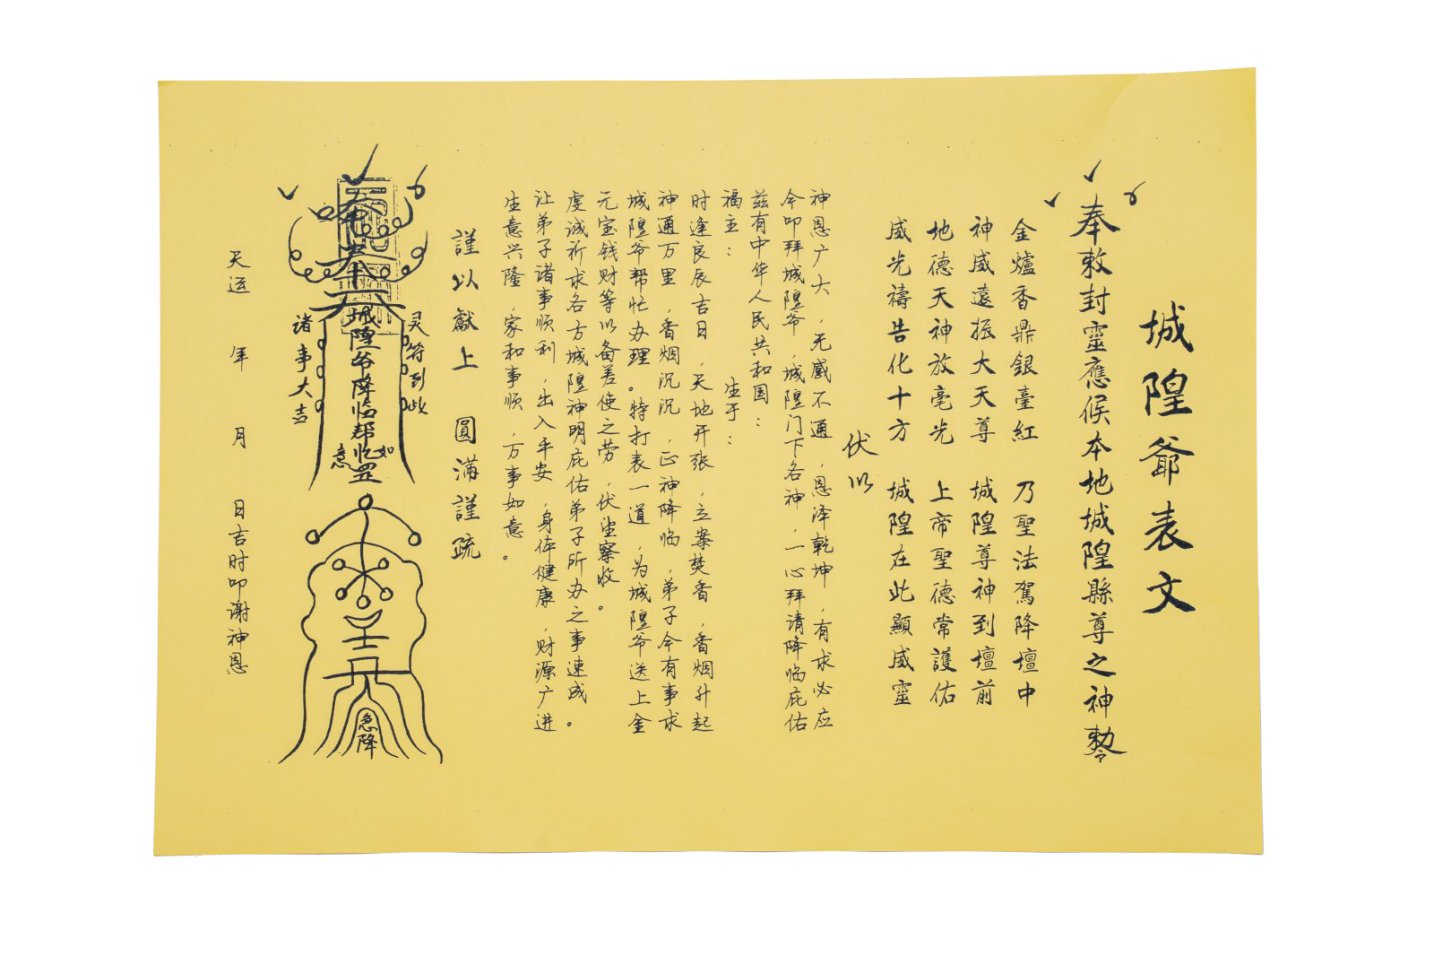 城隍爺表文
奉敕封靈應候本地城隍縣尊之神
金爐香鼎銀臺紅 乃聖法駕降壇中
神威遠振大天尊 城隍尊神到壇前
地德天神放亮光 上帝聖德常護佑
威光禱告化十方 城隍在此顯威靈
伏以
神恩广大，无感不通，恩泽乾坤，有求必应
今叩拜城隍爷，城隍门下各神，一心拜请降临庇佑
兹有中华人民共和国：
福主： 生于：
时逢良辰吉日，天地开张，立案焚香，香烟升起
神通万里，香烟沉沉，正神降临，弟子今有事求
城隍爷帮忙办理。特打表一道，为城隍爷送上金
元宝钱财等以备差使之劳，伏望察收。
虔诚祈求各方城隍神明庇佑弟子所办之事速成。
让弟子诸事顺利，出入平安，身体健康，财源广进
生意兴隆，家和事顺，万事如意。
謹以獻上 圓滿謹疏
灵符到此
奉
城隍爷降临帮忙罡
如意
诸事大吉
急降
天运 年 月 日吉时叩谢神恩